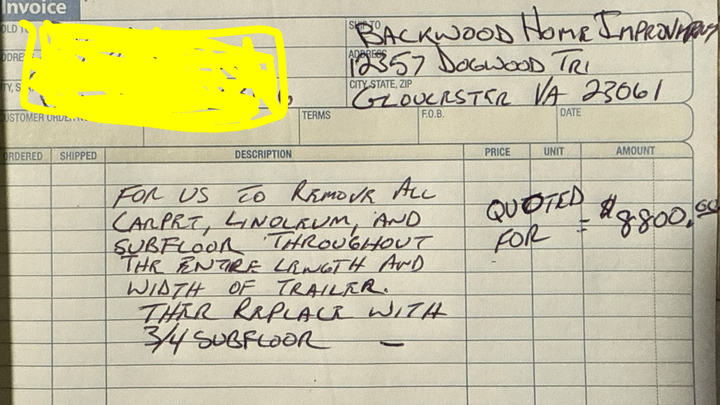 Invoice
OLD TO
SHIP TO BACKWOOD HOME IMPROVMENTS
ADDRE
ADDRESS 12357 DOGWOOD TRL
TY, S
CITY, STATE, ZIP GLOUCESTER VA 23061
CUSTOMER ORDER NO.
TERMS
F.O.B.
DATE
ORDERED SHIPPED DESCRIPTION PRICE UNIT AMOUNT
FOR US TO REMOVE ALL
CARPET, LINOLEUM, AND
SUBFLOOR THROUGHOUT
THE ENTIRE LENGTH AND
WIDTH OF TRAILER.
THEN REPLACE WITH
3/4 SUBFLOOR —
QUOTED
FOR = $8800.00